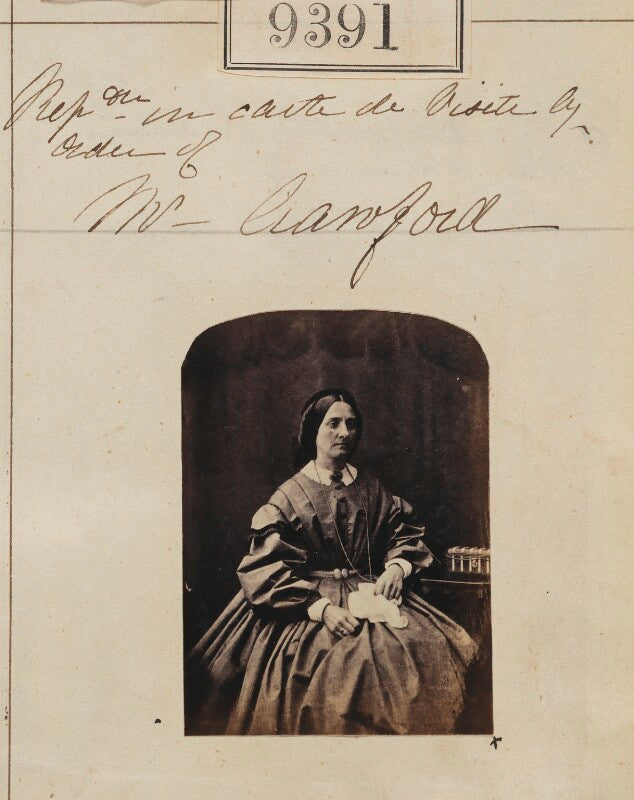 9391
Repon in carte de Visite by
order of
Mr Crawford